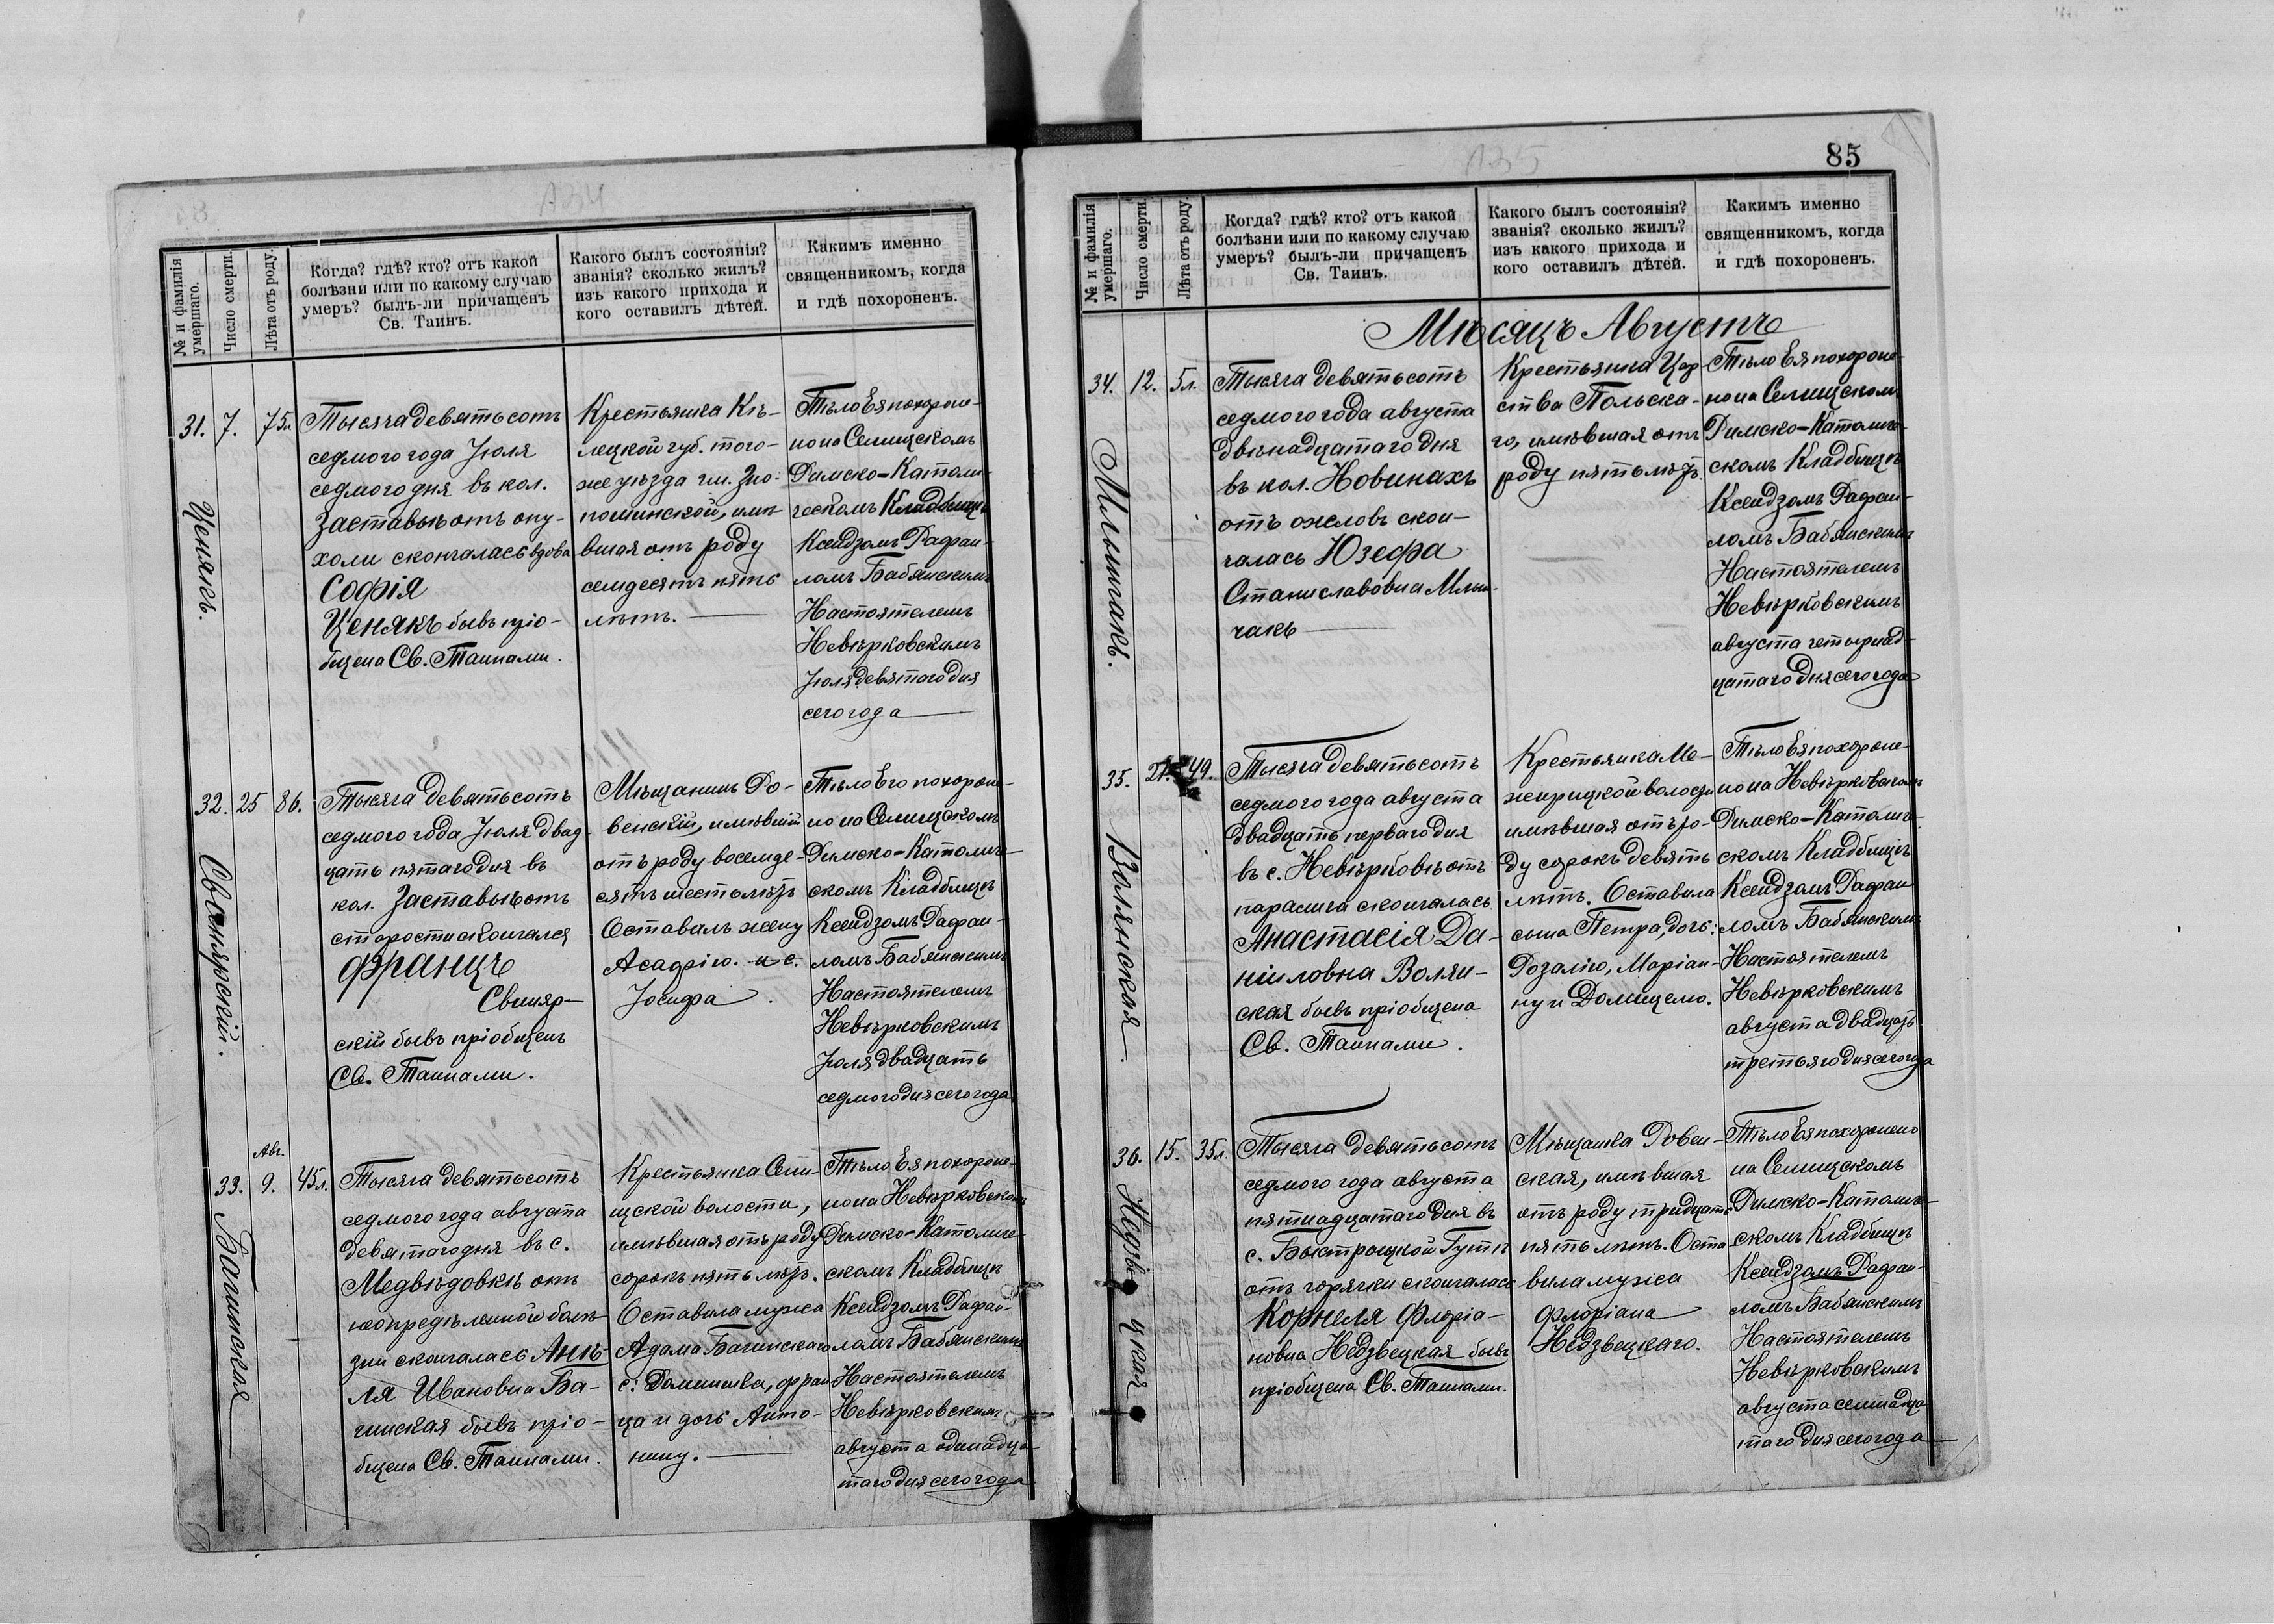 134
№ и фамилія умершаго.
Число смерти.
Лѣта отъ роду.
Когда? гдѣ? кто? отъ какой
болѣзни или по какому случаю
умеръ? былъ-ли причащенъ
Св. Таинъ.
Какого былъ состоянія?
званія? сколько жилъ?
изъ какого прихода и
кого оставилъ дѣтей.
Какимъ именно
священникомъ, когда
и гдѣ похороненъ.
31.
Ценякъ.
7.
75л.
Тысяча девятьсотъ
седмого года Іюля
седмого дня въ кол.
Заставье отъ опу-
холи скончалась вдова
Софія
Ценякъ бывъ пріо-
бщена Св. Тайнами.
Крестьянка Кѣ-
лецкой губ. того-
же уѣзда гм.
имѣ-
вшая отъ роду
семдесятъ пять
лѣтъ.
Тѣло Ея похороне-
но на Селищскомъ
Римско-Католи-
ческомъ Кладбищѣ
Ксендзомъ Рафаи-
ломъ Бабянскимъ
Настоятелемъ
Невѣрковскимъ
Іюля девятаго дня
сего года
32.
Свинярскій.
25
86.
Тысяча девятьсотъ
седмого года Іюля двад-
цать пятаго дня въ
кол. Заставье отъ
старости скончался
Францъ
Свиняр-
скій бывъ пріобщенъ
Св. Тайнами.
Мѣщанинъ Ро-
венскій, имѣвшій
отъ роду восемде-
сятъ шесть лѣтъ
Оставилъ жену
Асафію. и с.
Іосифа.
Тѣло Его похороне-
но на Селищскомъ
Римско-Католиче-
скомъ Кладбищѣ
Ксендзомъ Рафаи-
ломъ Бабянскимъ
Настоятелемъ
Невѣрковскимъ
Іюля двадцать
седмого дня сего года
33.
Багинская
Авг.
9.
45л.
Тысяча девятьсотъ
седмого года августа
девятаго дня въ с.
Медвѣдовкѣ отъ
неопредѣленной болѣ-
зни скончалась Анѣ-
ля Ивановна Ба-
гинская бывъ пріо-
бщена Св. Тайнами.
Крестьянка Сели-
щской волости,
имѣвшая отъ роду
сорокъ пять лѣтъ.
Оставила мужа
Адама Багинскаго
с: Доминика, Фран
ца и дочь Анто-
нину.
Тѣло Ея похороне-
но на Невѣрковскомъ
Римско-Католиче-
скомъ Кладбищѣ
Ксендзомъ Рафаи-
ломъ Бабянскимъ
Настоятелемъ
Невѣрковскимъ
августа одинадца-
таго дня сего года
135
85
№ и фамилія умершаго.
Число смерти.
Лѣта отъ роду.
Когда? гдѣ? кто? отъ какой
болѣзни или по какому случаю
умеръ? былъ-ли причащенъ
Св. Таинъ.
Какого былъ состоянія?
званія? сколько жилъ?
изъ какого прихода и
кого оставилъ дѣтей.
Какимъ именно
священникомъ, когда
и гдѣ похороненъ.
Мѣсяцъ Августъ
34.
Млынчакъ.
12.
5л.
Тысяча девятьсотъ
седмого года августа
двѣнадцатаго дня
въ кол. Новинахъ
отъ ожеговъ скон-
чалась Юзефа
Станиславовна Млын-
чакъ
Крестьянка Цар
ства Польска-
го, имѣвшая отъ
роду пять лѣтъ.
Тѣло Ея похороне-
но на Селищскомъ
Римско-Католиче-
скомъ Кладбищѣ
Ксендзомъ Рафаи-
ломъ Бабянскимъ
Настоятелемъ
Невѣрковскимъ
августа четырнад-
цатаго дня сего года
35.
Волянская.
21.
49.
Тысяча девятьсотъ
седмого года августа
двадцать перваго дня
въ с. Невѣрковѣ отъ
паралича скончалась
Анастасія Да-
ніиловна Волян-
ская бывъ пріобщена
Св. Тайнами.
Крестьянка Ме-
жирицкой волости
имѣвшая отъ ро-
ду сорокъ девять
лѣтъ. Оставила
сына Петра, дочь:
Розалію, Маріан-
ну и Домицелю.
Тѣло Ея похороне-
но на Невѣрковскомъ
Римско-Католиче-
скомъ Кладбищѣ
Ксендзомъ Рафаи
ломъ Бабянскимъ
Настоятелемъ
Невѣрковскимъ
августа двадцать
третьяго дня сего года
36.
Недзвецкая
15.
35л.
Тысяча девятьсотъ
седмого года августа
пятнадцатаго дня въ
с. Быстрецкой Гутѣ
отъ горячки скончалась
Корнеля Флоріа-
новна Недзвецкая бывъ
пріобщена Св. Тайнами.
Мѣщанка Ровен-
ская, имѣвшая
отъ роду тридцать
пять лѣтъ. Оста
вила мужа
Флоріана
Недзвецкаго.
Тѣло Ея похоронено
на Селищскомъ
Римско-Католиче-
скомъ Кладбищѣ
Ксендзомъ Рафаи-
ломъ Бабянскимъ
Настоятелемъ
Невѣрковскимъ
августа семнадца
таго дня сего года